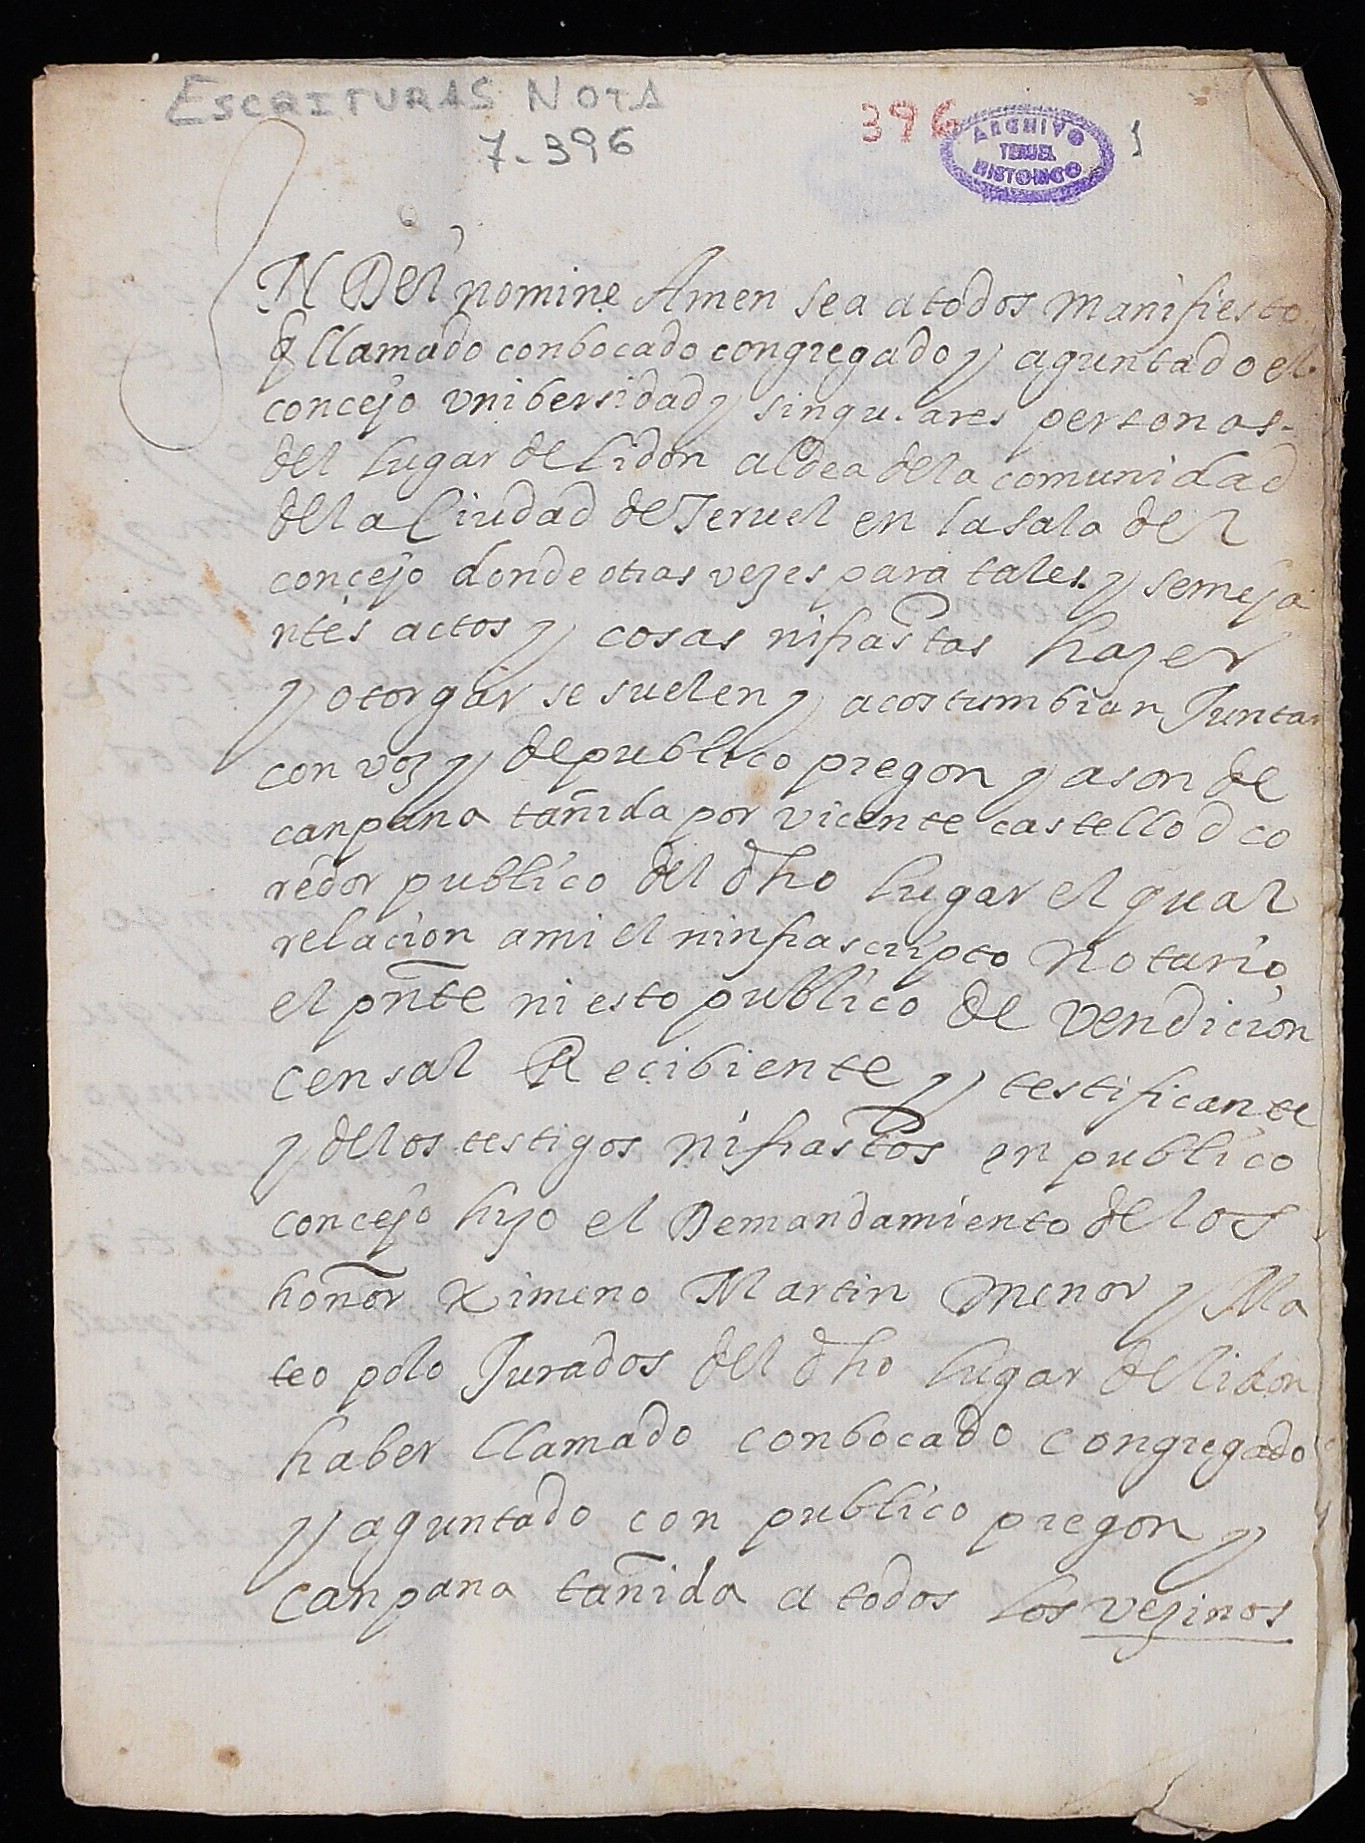 ESCRITURAS NOTA
7-396
396
ARCHIVO
TERUEL
HISTORICO
1
IN Dei nomine Amen sea a todos manifiesto
q llamado conbocado congregado y aguntado el
concejo unibersidad y singulares personas
del lugar de Lidon aldea de la comunidad
de la Ciudad de Teruel en la sala del
concejo donde otras vezes para tales y semeja
ntes actos y cosas nifrastas hazer
y otorgar se suelen y acostumbran Juntar
con voz y de publico pregon y a son de
canpana tañida por vicente castellod co
redor publico del dho lugar el qual
relacion a mi el ninfrascripto Notario
el pnte niesto publico de vendicion
censal Recibiente y testificante
y de los testigos nifrastos en publico
concejo hizo el Demandamiento de los
honor Ximeno Martin menor y Ma
teo polo Jurados del dho lugar de lidon
haber llamado conbocado congregado
y aguntado con publico pregon y
canpana tañida a todos los vezinos